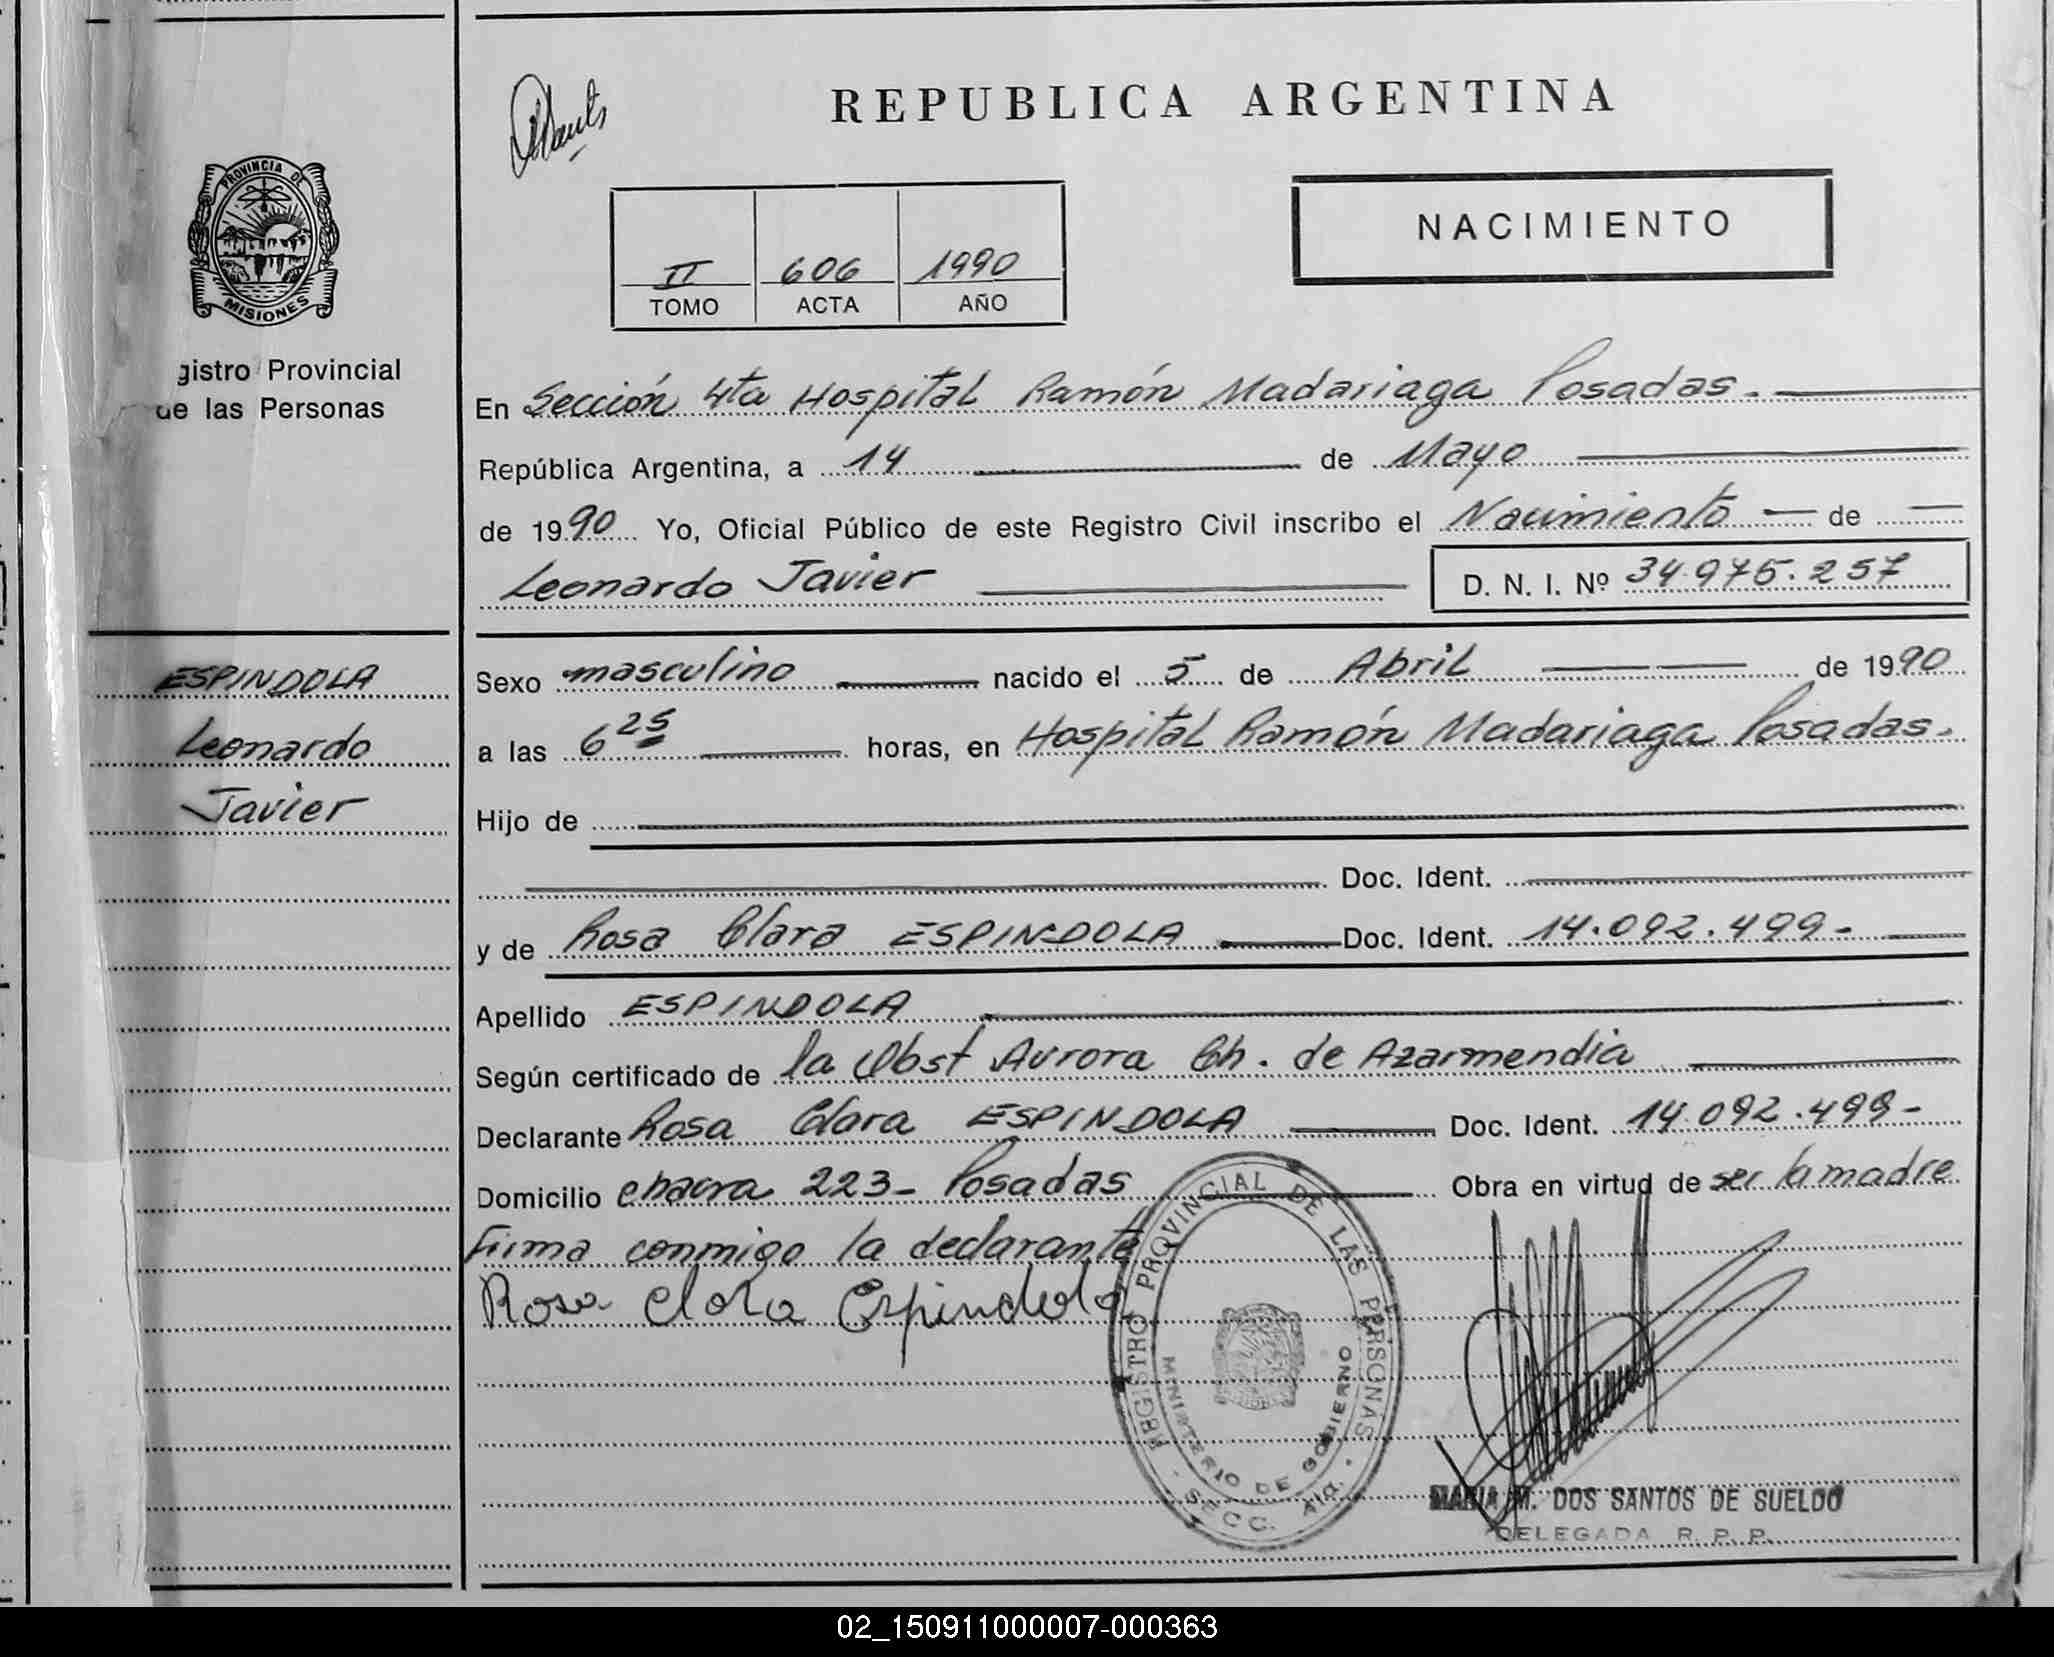 REPUBLICA ARGENTINA
PROVINCIA DE
MISIONES
gistro Provincial
de las Personas
NACIMIENTO
II 606 1990
TOMO ACTA AÑO
En Sección 4ta Hospital Ramón Madariaga Posadas.
República Argentina, a 14 de Mayo
de 1990 Yo, Oficial Público de este Registro Civil inscribo el Nacimiento de
Leonardo Javier D. N. I. Nº 34.975.257
ESPINDOLA
Leonardo
Javier
Sexo masculino nacido el 5 de Abril de 1990
a las 6 25 horas, en Hospital Ramón Madariaga Posadas.
Hijo de
Doc. Ident.
y de Rosa Clara ESPINDOLA Doc. Ident. 14.092.499-
Apellido ESPINDOLA
Según certificado de la Obst Aurora Ch. de Azarmendia
Declarante Rosa Clara ESPINDOLA Doc. Ident. 14.092.499-
Domicilio chacra 223- Posadas Obra en virtud de ser la madre
Firma conmigo la declarante
Rosa Clara Espindola
REGISTRO PROVINCIAL DE LAS PERSONAS
MINISTERIO DE GOBIERNO
SECC. 4ta.
MARIA M. DOS SANTOS DE SUELDO
DELEGADA R. P. P.
02_150911000007-000363